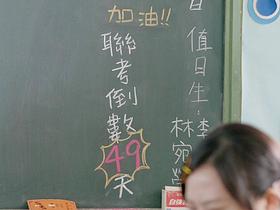 加油!!
聯考倒數
49
天
值日生:李
林宛